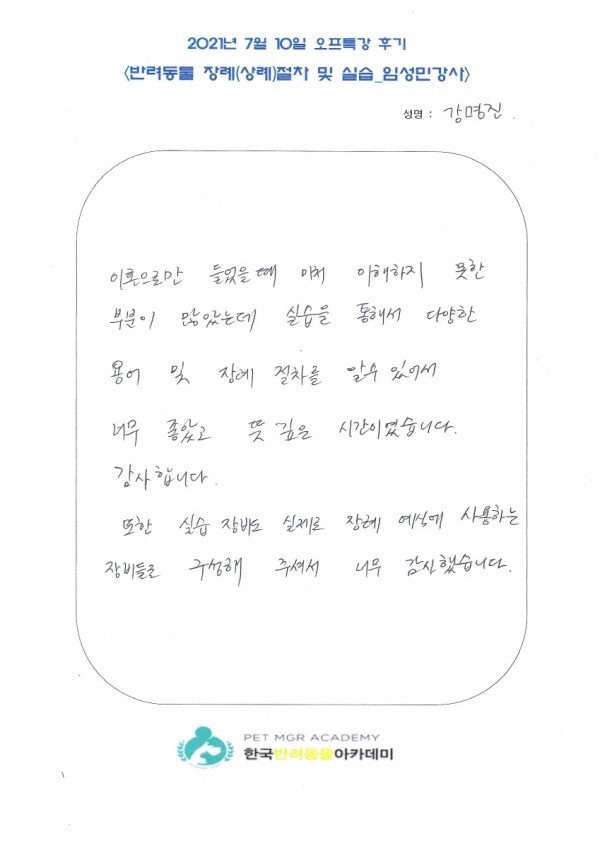 2021년 7월 10일 오프특강 후기
<반려동물 장례(상례)절차 및 실습_임성민강사>
성명 : 강명진.
이론으로만 들었을 때 미처 이해하지 못한
부분이 많았는데 실습을 통해서 다양한
용어 및 장례 절차를 알수 있어서
너무 좋았고 뜻 깊은 시간이였습니다.
감사합니다.
또한 실습 장비도 실제로 장례 예식에 사용하는
장비들로 구성해 주셔서 너무 감사했습니다.
PET MGR ACADEMY
한국반려동물아카데미